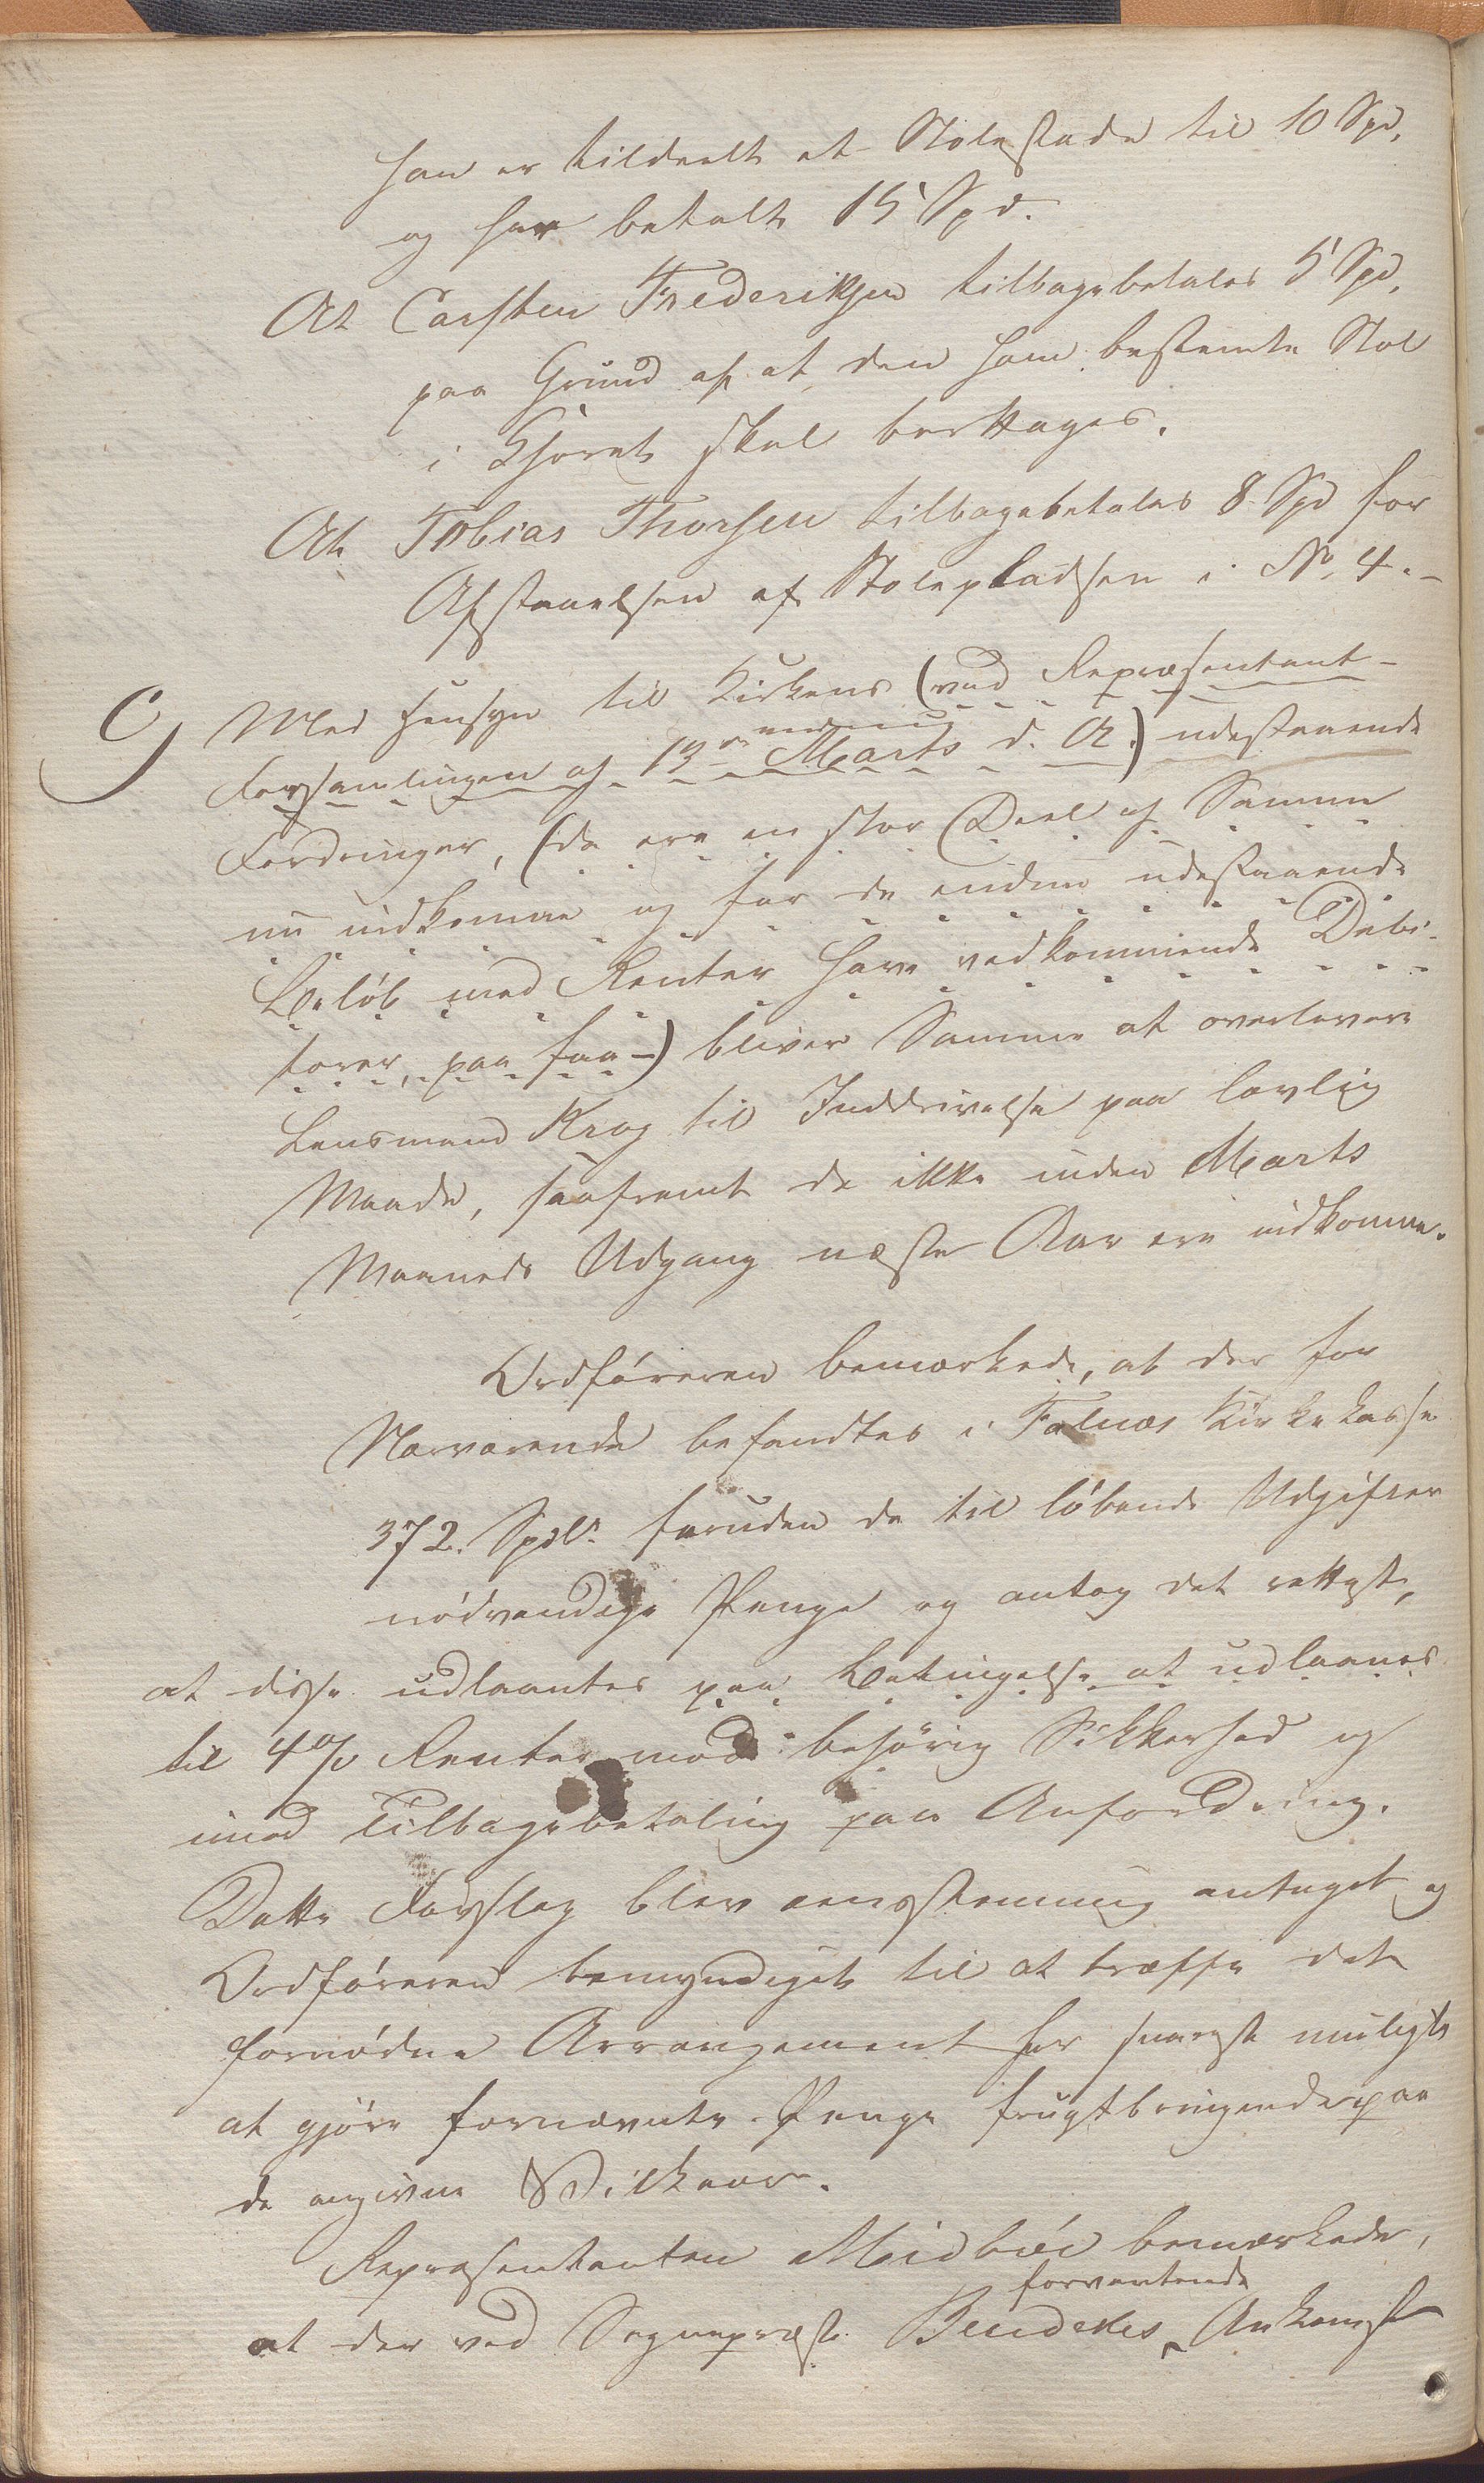 han er tildeelt et Stolestade til 10 Spd,
og har betalt 15 Spd.
At Carsten Frederiksen tilbagebetales 5 Spd,
paa Grund af at den ham bestemte Stol
i Choret skal borttages.
At Tobias Thorsen tilbagebetales 8 Spd for
Afstaaelsen af Stolepladsen i No 4.-
C) Med Hensyn til Kirkens (ved Repræsentant-
Forsamlingen af 13de Marts d. A.) udestaaende
Fordringer, (da ere en stor Deel af Samme
nu indkomne og for de endnu udestaaende
Beløb med Renter have vedkommende Debi-
torer, paa faa -) bliver Samme at overlevere
Lensmand Krog til Inddrivelse paa lovlig
Maade, saafremt de ikke inden Marts
Maaneds Udgang næste Aar ere indkomne.
Ordføreren bemærkede, at der for
Nærværende befandtes i Falnæs Kirkekasse
372. Spdlr. foruden de til løbende Udgifter
nødvendige Penge og antog det rettest,
at disse udlaantes paa Betingelse at udlaanes
til 4 % Renter mod behørig Sikkerhed og
med Tilbagebetaling paa Anfordring.
Dette Forslag blev eensstemmig antaget og
Ordføreren bemyndiget til at træffe det
fornødne Arrangement for snarest muligt
at gjøre fornævnte Penge frugtbringende paa
de angivne Vilkaar.
Repræsentanten Midbøe bemærkede,
forventende
at der ved Sognepræst Bendekes Ankomst